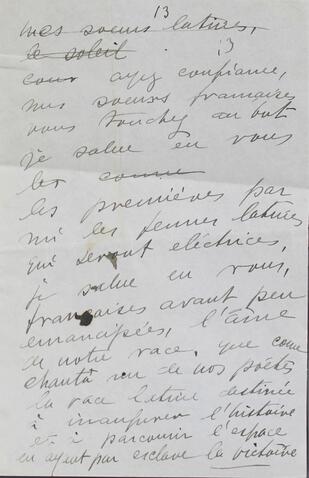 13
mes soeurs latines,
le soleil 13
ayez confiance,
mes soeurs françaises
vous touchez au but
je salue en vous
les comme
les premières par
mi les femmes latines
qui seront eléctrices,
je salue en vous,
françaises avant peu
emancipées, l'âme
de notre race, que come
chantà un de nos poètes
la race latine destinée
à inaugurer l'histoire
et à parcourir l'espace
en ayant par esclave la victoire